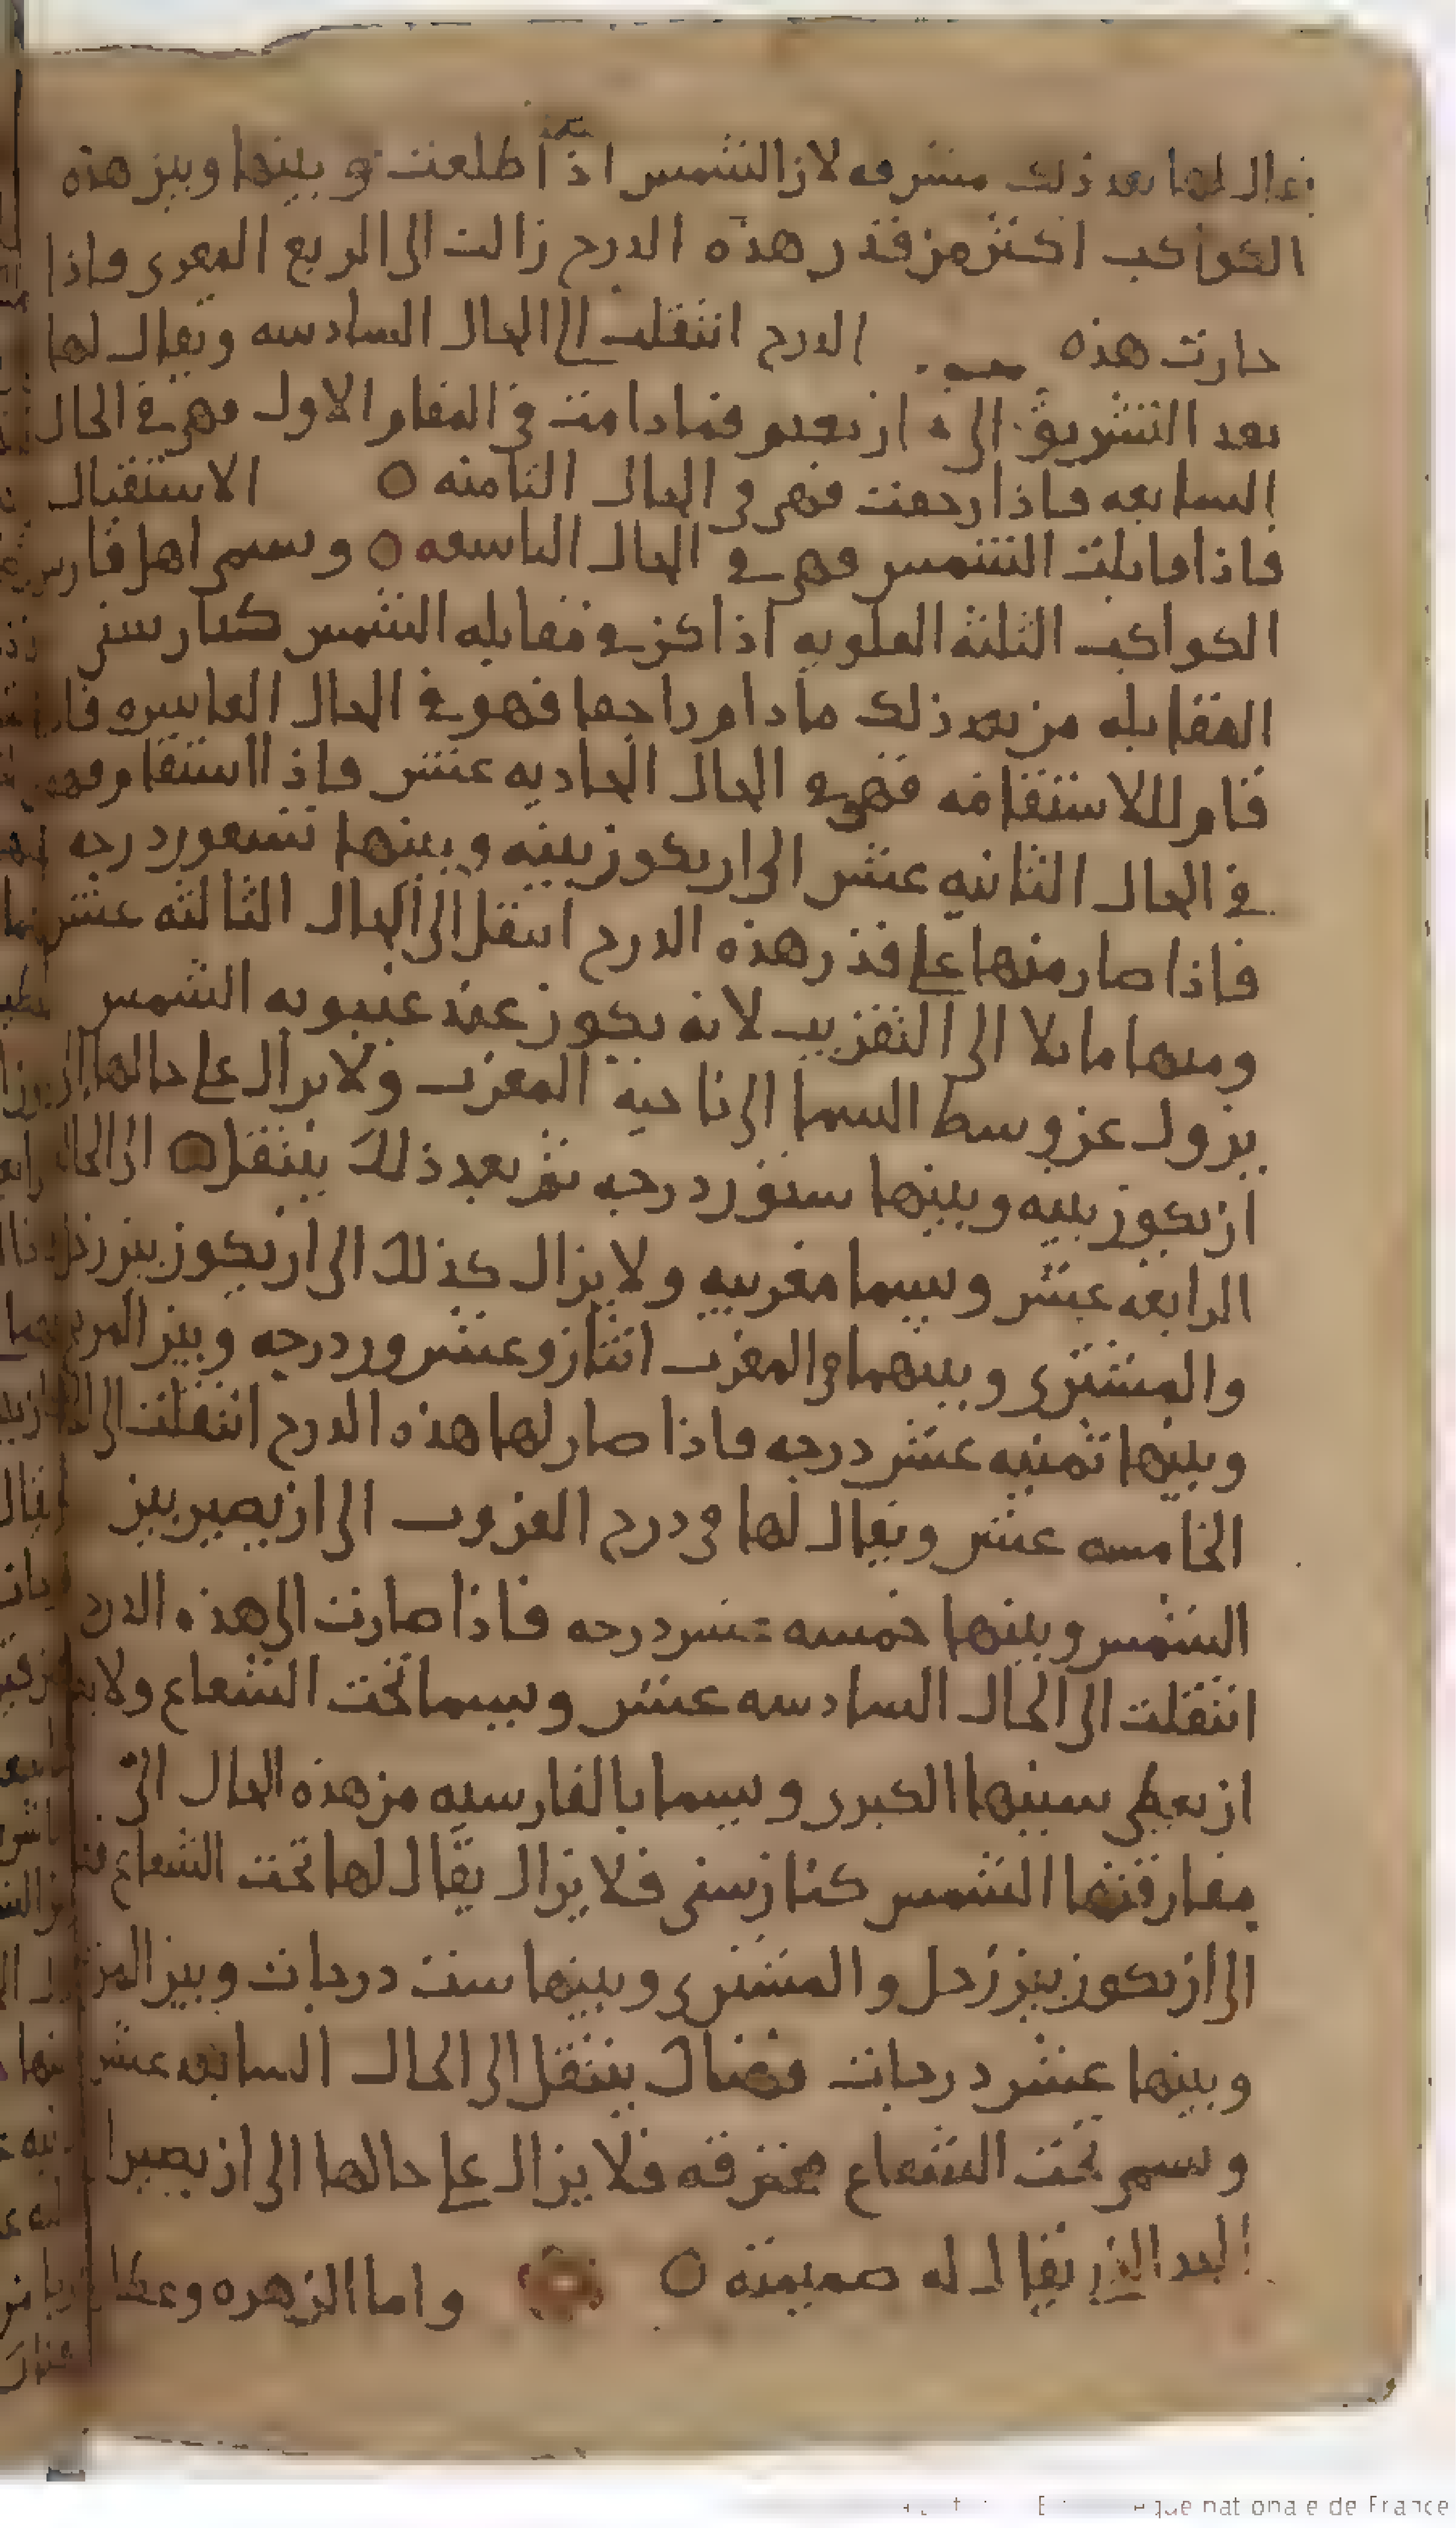 يقال لها بعد ذلك مشرقه لان الشمس اذا طلعت و بينها وبين هذه
الكواكب اكثر من قدر هذه الدرج زالت الى الربع المغربى فاذا
جازت هذه الدرج انتقلت الى الحال السادسه ويقال لها
بعد التشريق الى ان تقيم فما دامت فى المقام الاول فهى فى الحال
السابعه فاذا رجعت فهى فى الحال الثامنه ٥ الاستقبال
فاذا قابلت الشمس فهى فى الحال التاسعه ٥ وسمى اهل فارس
الكواكب الثلثه العلويه اذا كن فى مقابله الشمس كنارسى
المقابله من بعد ذلك ما دام راجعا فهو فى الحال العاشره فاذا
قام للاستقامه فهى فى الحال الحاديه عشر فاذا استقام فهى
فى الحال الثانيه عشر الى ان يكون بينه وبينها تسعون درجه
فاذا صار منها على قدر هذه الدرج انتقل الى الحال الثالثه عشر
ومنها مايلا الى التغريب لانه يكون عند غيبوبه الشمس
يزول عن وسط السما الى ناحيه المغرب ولا يزال على حالها الى
ان يكون بينه وبينها ستون درجه ثم بعد ذلك ينتقل ٥ الى الحال
الرابعه عشر ويسما مغربيه ولا يزال كذلك الى ان يكون بين زحل
والمشترى وبينهما فى المغرب اثنان وعشرون درجه وبين المريخ
وبينها ثمنيه عشر درجه فاذا صار لها هذه الدرج انتقلت الى الحال
الخامسه عشر ويقال لها فى درج الغروب الى ان يصير بين
الشمس وبينها خمسه عشر درجه فاذا صارت الى هذه الدرج
انتقلت الى الحال السادسه عشر ويسما تحت الشعاع ولا
ان يعطى سنينها الكبرى ويسما بالفارسيه من هذه الحال الى
مفارقتها الشمس كنارسى فلا يزال يقال لها تحت الشعاع
الى ان يكون بين زحل والمشترى وبينها ست درجات وبين المريخ
وبينها عشر درجات فهناك ينتقل الى الحال السابعه عشر
وسمى تحت الشعاع محترقه فلا يزال على حالها الى ان يصير
الحد الذى يقال له صميمته ٥ واما الزهره وعطا
nationale de France